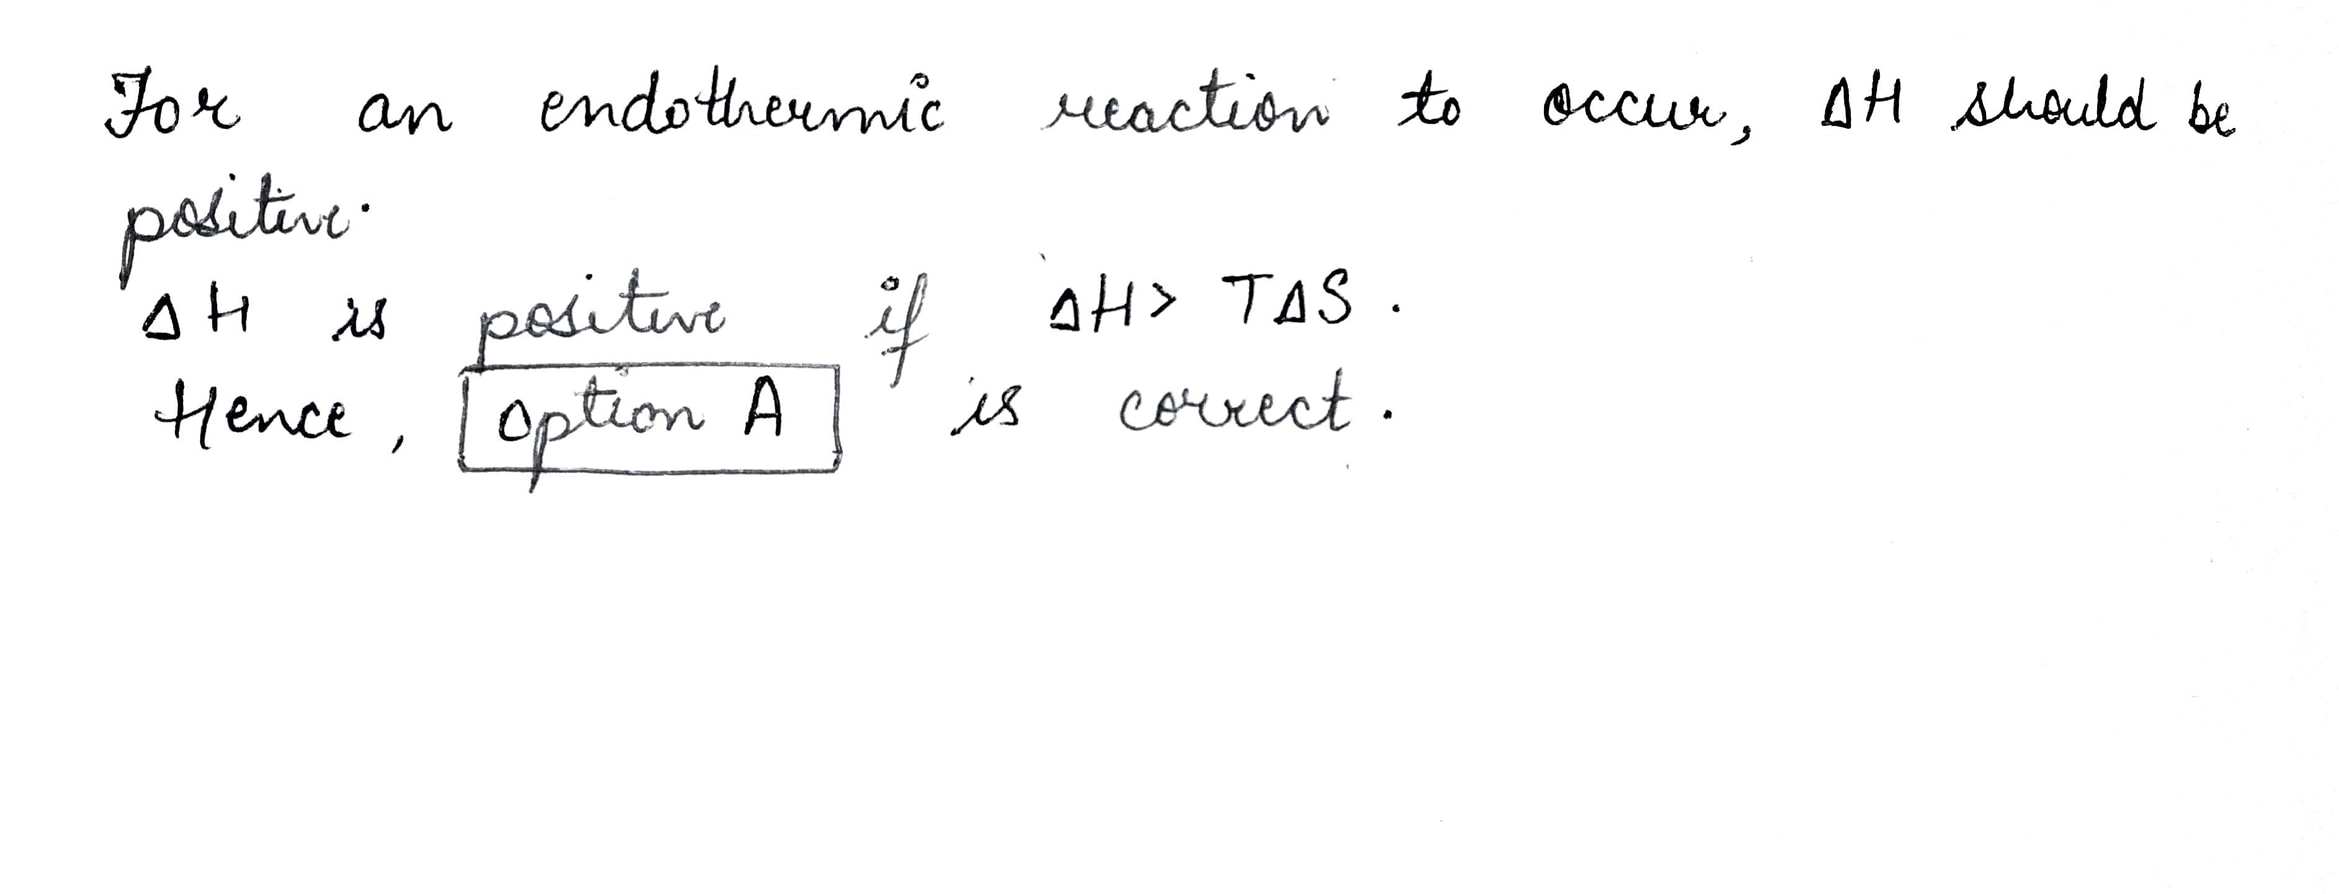 For an endothermic reaction to occur, ΔH should be
positive.
ΔH is positive if ΔH> TΔS.
Hence, option A is correct.